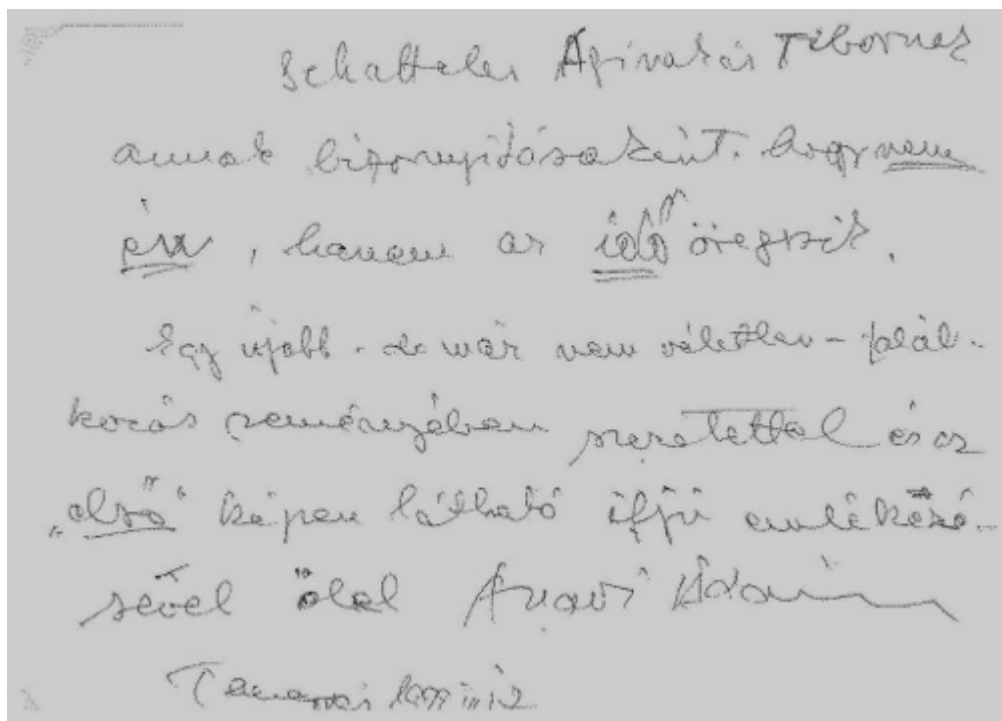 Schatteles Tibornak
annak bizonyításaként, hogy nem
én, hanem az idő öregszik.
Egy újabb - de már nem véletlen - talál-
kozás reményében szeretettel és az
„első“ képen látható ifjú emlékezé-
sével ölel Anavi Ádám
Temesvár 1999